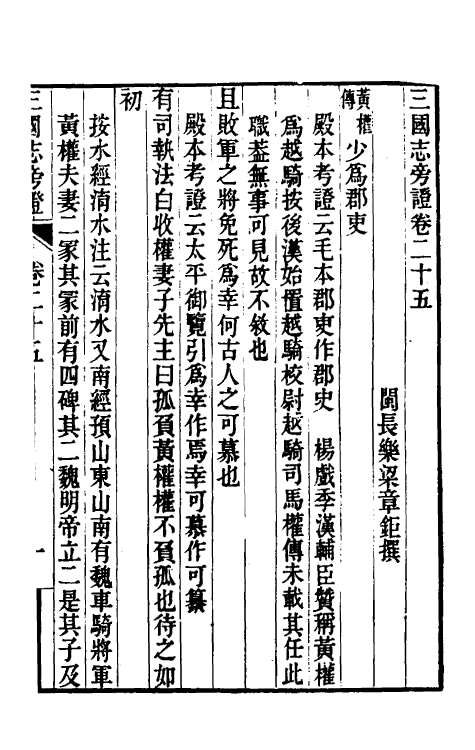 三國志旁證卷二十五
閩長樂梁章鉅撰
黃權傳 少爲郡吏
殿本考證云毛本郡吏作郡史 楊戲季漢輔臣贊稱黃權
爲越騎按後漢始置越騎校尉越騎司馬權傳未載其任此
職葢無事可見故不敘也
且敗軍之將免死爲幸何古人之可慕也
殿本考證云太平御覽引爲幸作焉幸可慕作可纂
有司執法白收權妻子先主曰孤負黃權權不負孤也待之如
初
按水經淯水注云淯水又南經預山東山南有魏車騎將軍
黃權夫妻二冢其冢前有四碑其二魏明帝立二是其子及
三國志旁證 卷二十五 一